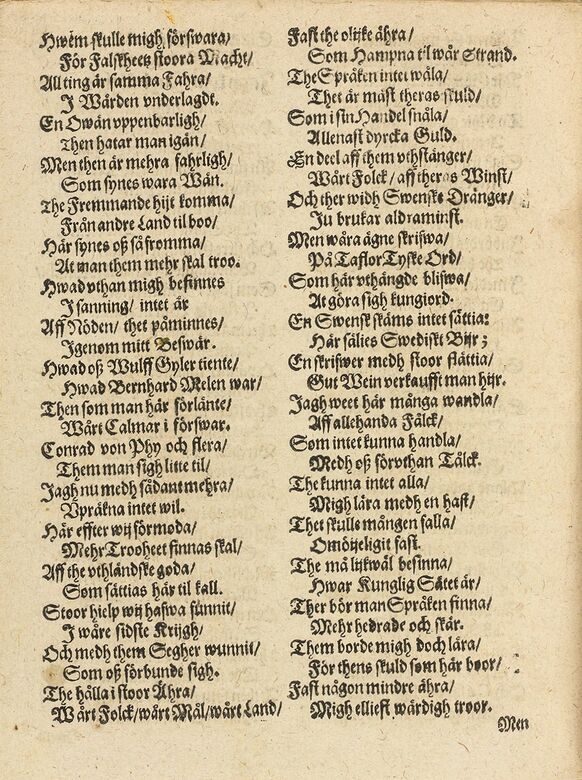 Hwem skulle migh förswara/
För Falskheetz stoora Macht/
All ting är samma Fahra/
J Wärden vnderlagdt.
En Owän vppenbarligh/
Then hatar man igän/
Men then är mehra fahrligh/
Som synes wara Wän.
The Fremmande hijt komma/
Från andre Land til boo/
Här synes oß så fromma/
At man them mehr skal troo.
Hwad vthan migh befinnes
J sanning/ intet är
Aff Nöden/ thet påminnes/
Jgenom mitt Beswär.
Hwad oß Wulff Gyler tiente/
Hwad Bernhard Melen war/
Then som man här förlänte/
Wårt Calmar i förswar.
Conrad von Phy och flera/
Them man sigh litte til/
Jagh nu medh sådant mehra/
Vpräkna intet wil.
Här effter wij förmoda/
Mehr Trooheet finnas skal/
Aff the vthländske goda/
Som sättias här til kall.
Stoor hielp wij hafwa funnit/
J wåre sidste Krijgh/
Och medh them Segher wunnit/
Som oß förbunde sigh.
The hålla i stoor Ähra/
Wårt Folck/ wårt Mål/ wårt Land/
Fast the olijke ähra/
Som Hampna til wår Strand.
The Språken intet wåla/
Thet är mäst theras skuld/
Som i sin Handel snåla/
Allenast dyrcka Guld.
En deel aff them vthstänger/
Wårt Folck/ aff theras Winst/
Och ther widh Swenske Dränger/
Ju brukar aldraminst.
Men wåra ägne skrifwa/
På Taflor Tyske Ord/
Som här vthängde blifwa/
At göra sigh kungiord.
En Swensk skäms intet sättia:
Här sälies Swediskt Bijr;
En skrifwer medh stoor flättia/
Gut Wein verkaufft man hijr.
Jagh weet här många wandla/
Aff allehanda Fälck/
Som intet kunna handla/
Medh oß förvthan Tålck.
The kunna intet alla/
Migh lära medh en hast/
Thet skulle mången falla/
Omöijeligit fast.
The må lijkwäl besinna/
Hwar Kunglig Sätet är/
Ther bör man Språken finna/
Mehr hedrade och skär.
Them borde migh doch lära/
För thens skuld som här boor/
Fast någon mindre ähra/
Migh elliest wärdigh troor.
Men